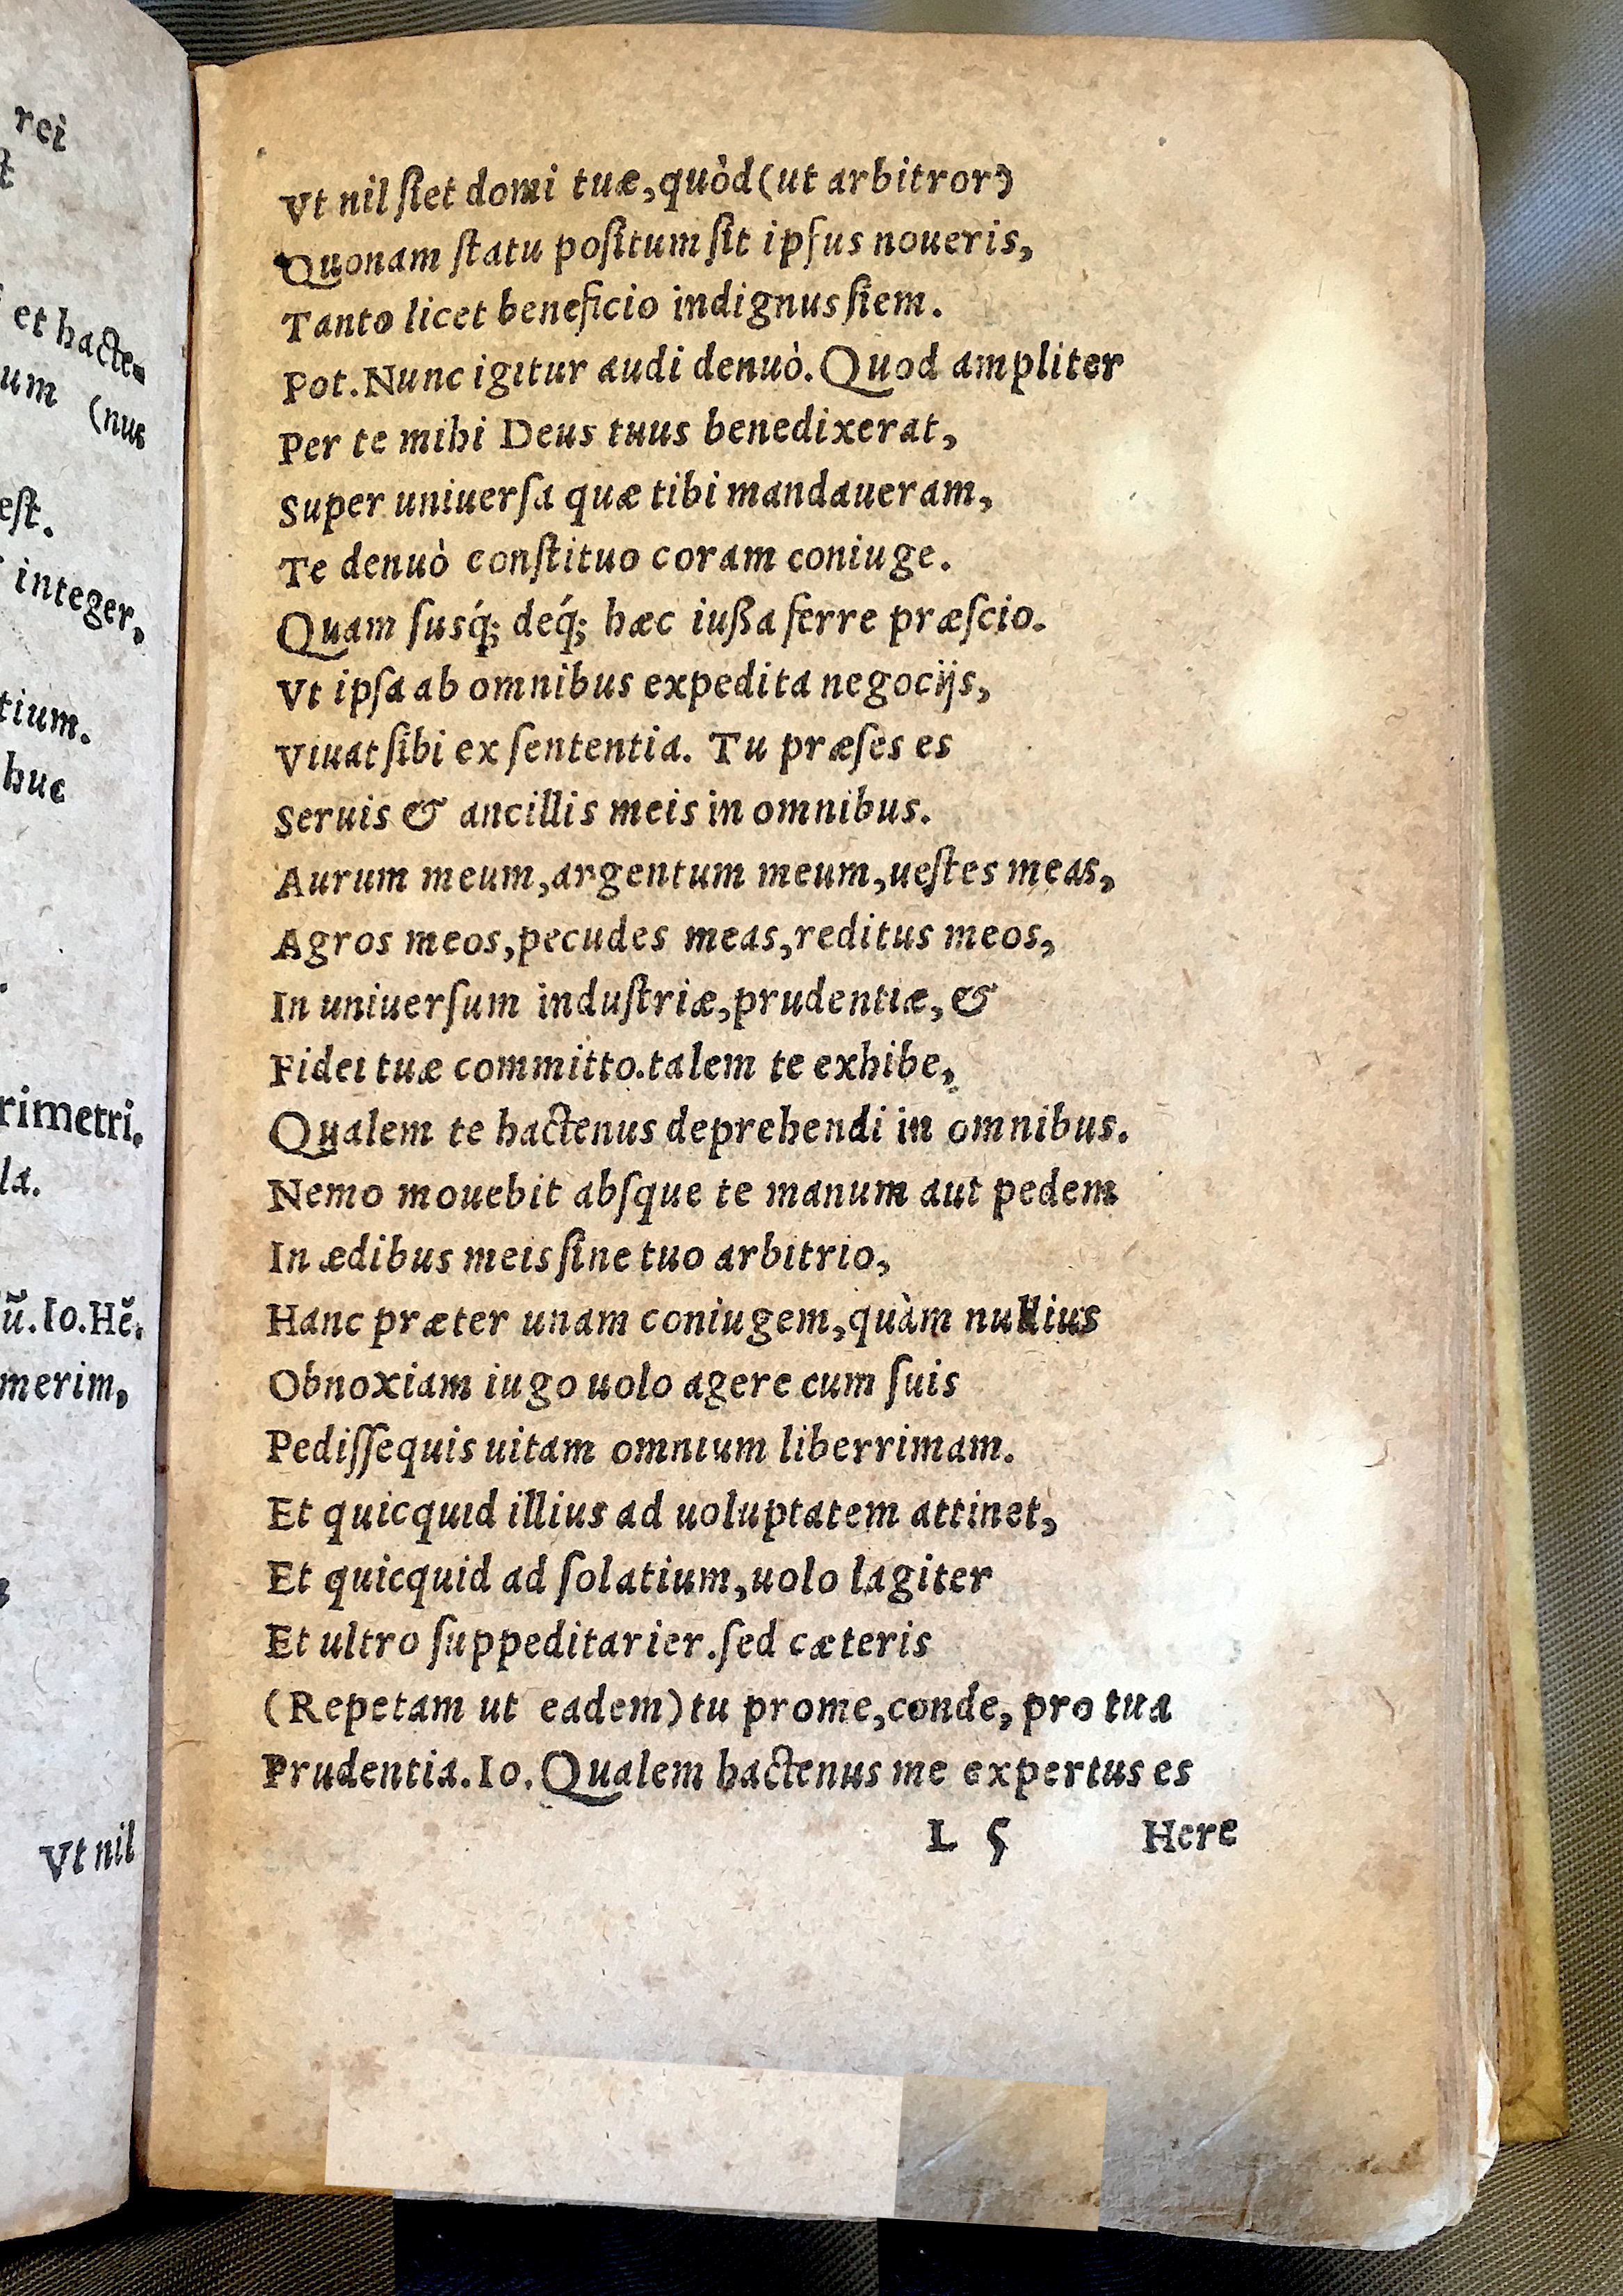 rei
et hacte-
um (nus
est.
integer,
tium.
huc
rimetri.
la.
ũ. Io. Hẽ.
merim,
Vt nil
Vt nil ſiet domi tuæ, quòd (ut arbitror)
Quonam ſtatu poſitum ſit ipſus noueris,
Tanto licet beneficio indignus ſiem.
Pot. Nunc igitur audi denuò. Quod ampliter
Per te mihi Deus tuus benedixerat,
Super uniuerſa quæ tibi mandaueram,
Te denuò conſtituo coram coniuge.
Quam ſusq́; deq́; hæc iußa ferre præſcio.
Vt ipſa ab omnibus expedita negocijs,
Viuat ſibi ex ſententia. Tu præſes es
Seruis & ancillis meis in omnibus.
Aurum meum, argentum meum, ueſtes meas,
Agros meos, pecudes meas, reditus meos,
In uniuerſum induſtriæ, prudentiæ, &
Fidei tuæ committo. talem te exhibe,
Qualem te hactenus deprehendi in omnibus.
Nemo mouebit abſque te manum aut pedem
In ædibus meis ſine tuo arbitrio,
Hanc præter unam coniugem, quàm nullius
Obnoxiam iugo uolo agere cum ſuis
Pediſſequis uitam omnium liberrimam.
Et quicquid illius ad uoluptatem attinet,
Et quicquid ad ſolatium, uolo lagiter
Et ultro ſuppeditarier. ſed cæteris
(Repetam ut eadem) tu prome, conde, pro tua
Prudentia. Io. Qualem hactenus me expertus es
L 5 Here